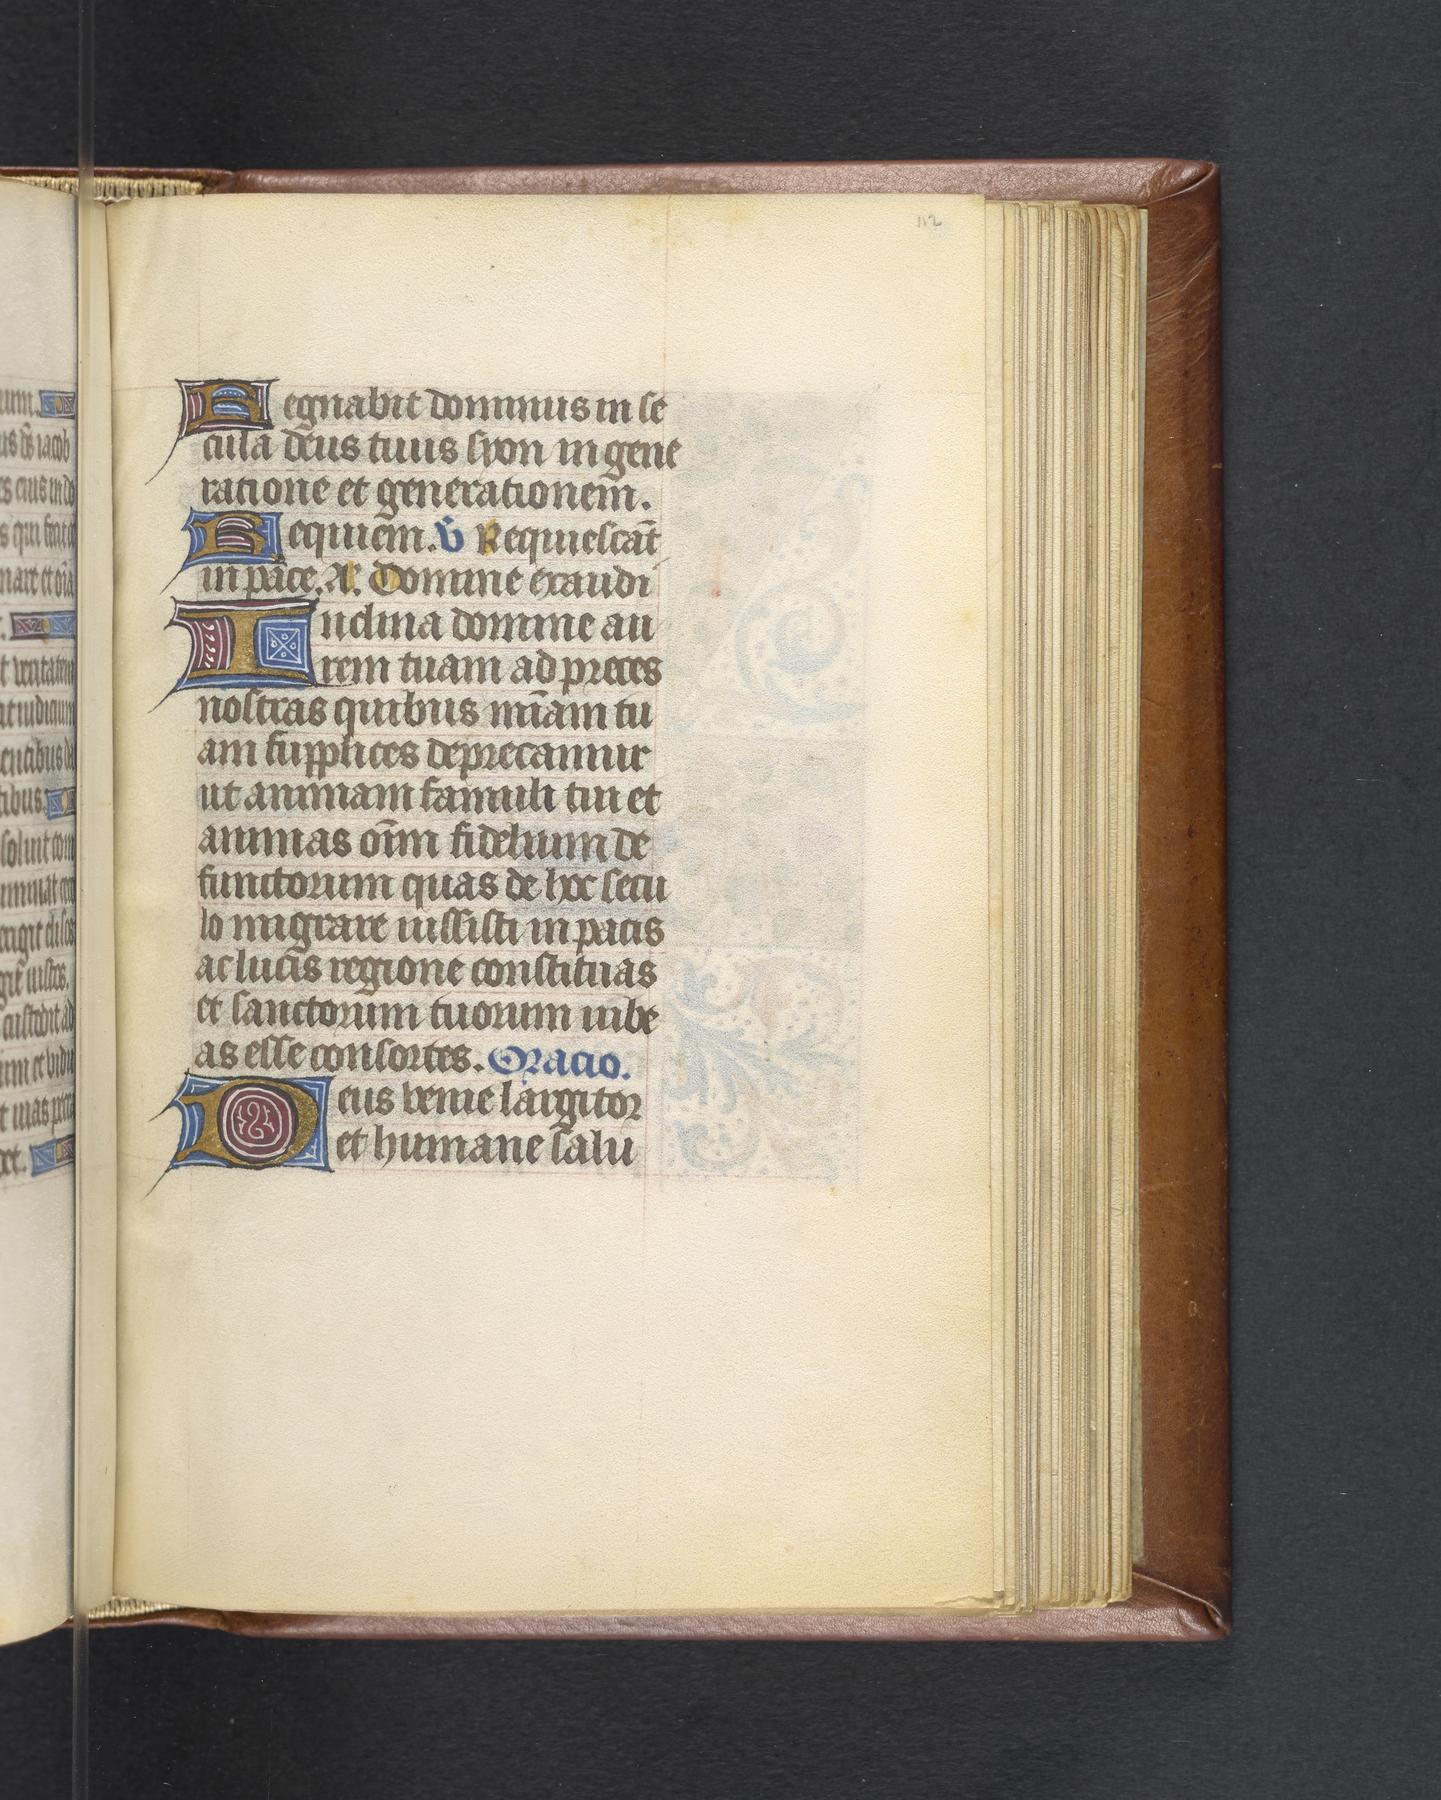 112
Regnabit dominus in se
cula deus tuus syon in gene
ratione et generationem.
Requiem. V̄ Requiescāt
in pace. A. Domine exaudi
Inclina domine au
rem tuam ad preces
nostras quibus mīam tu
am supplices deprecamur
ut animam famuli tui et
animas oīm fidelium de
functorum quas de hoc secu
lo migrare iussisti in pacis
ac lucis regione constituas
et sanctorum tuorum iube
as esse consortes. Oracio.
Deus venie largitor
et humane salu